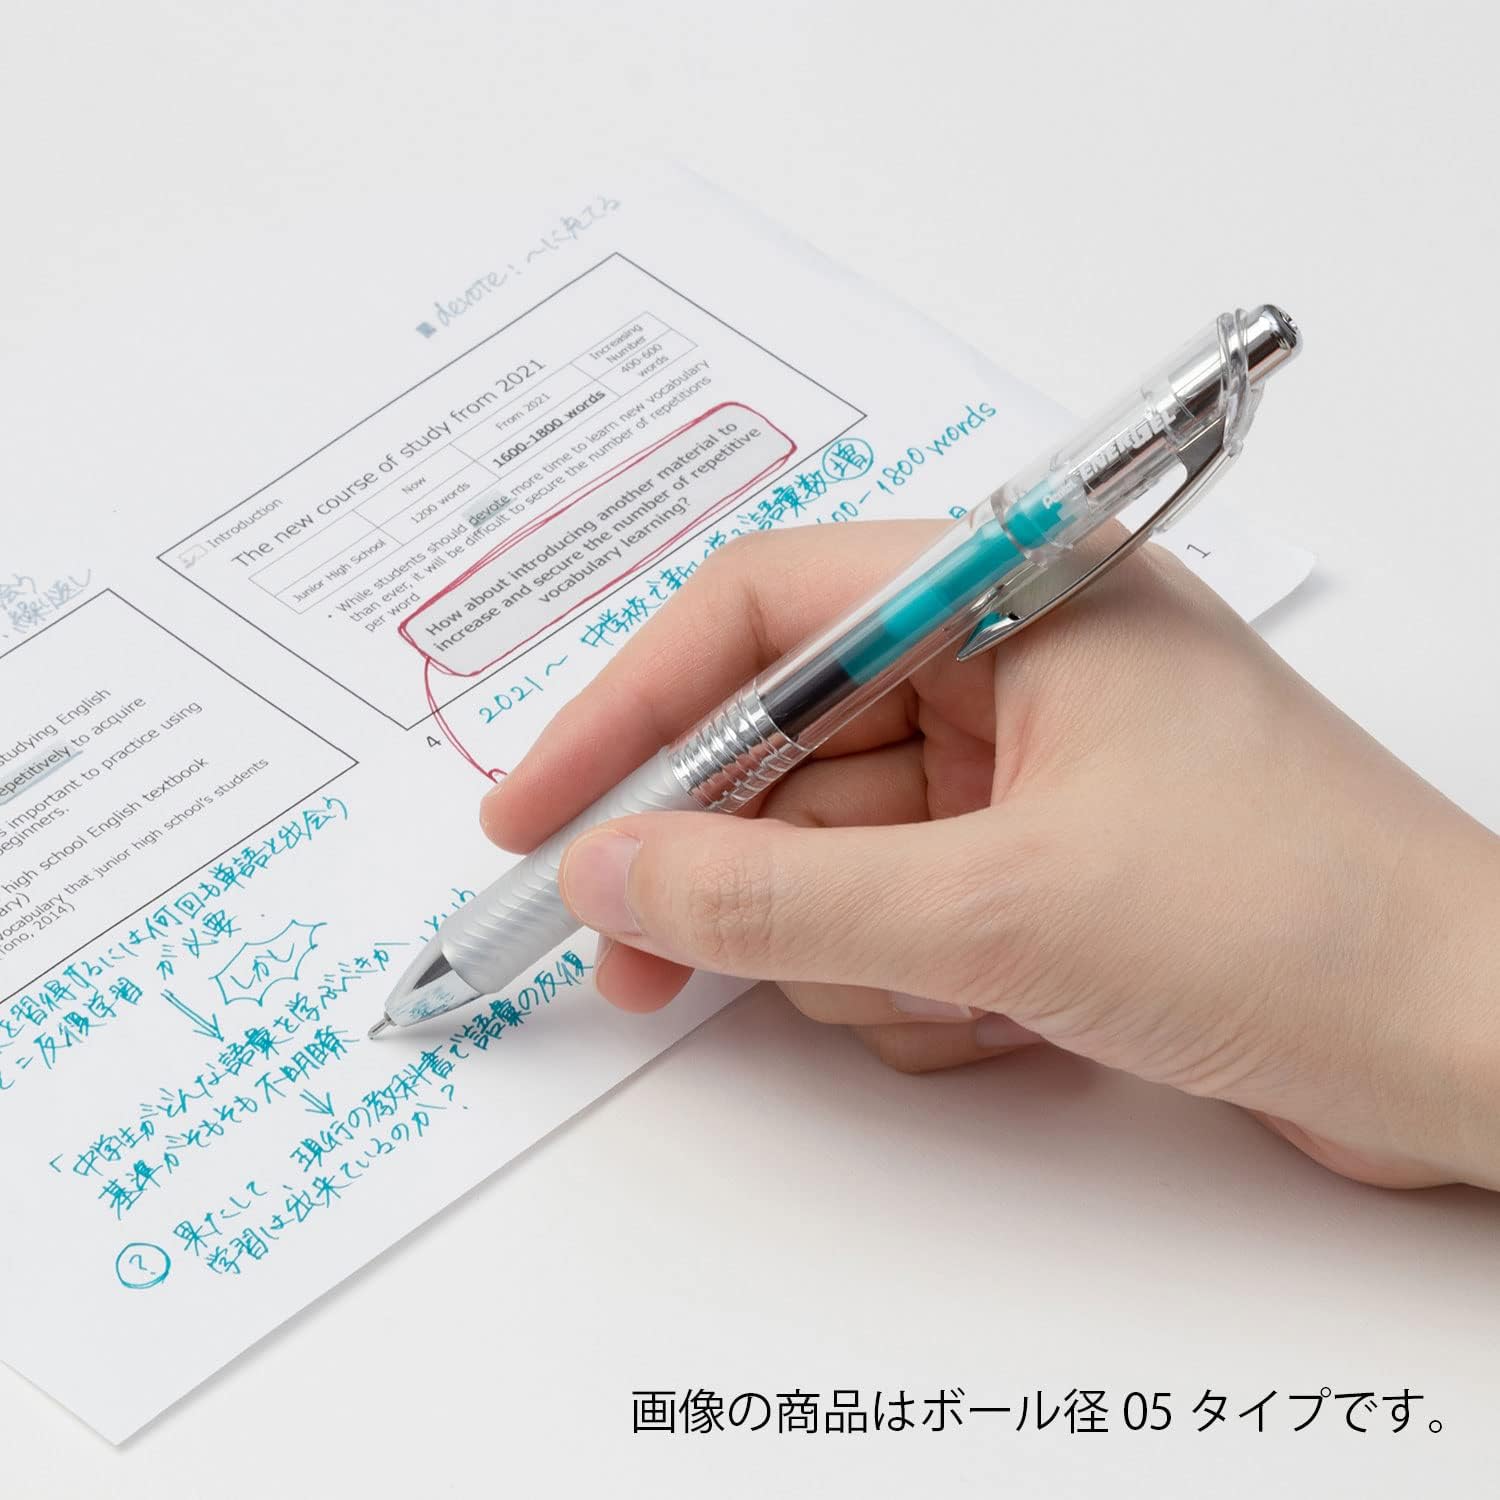 ■devote: 〜に充てる
Introduction
The new course of study from 2021
Now
From 2021
Increasing
Number
Junior High School
1200 words
1600-1800 words
400-600
words
・While students should devote more time to learn new vocabulary
than ever, it will be difficult to secure the number of repetitions
per word
How about introducing another material to
increase and secure the number of repetitive
vocabulary learning?
4
2021〜 中学校で新しく学ぶ語彙数増
-1800 words
1
繰り返し
tudying English
epetitively to acquire
s important to practice using
eginners.
high school English textbook
ary)
vocabulary that junior high school's students
Tono, 2014)
を習得するには何回も単語と出会う
反復学習 が必要
しかし
「中学生がどんな語彙を学ぶべきか
基準がそもそも不明瞭
? 果たして 現行の教科書で語彙の反復
学習は出来ているのか?
Pentel ENERGEL
画像の商品はボール径 05 タイプです。